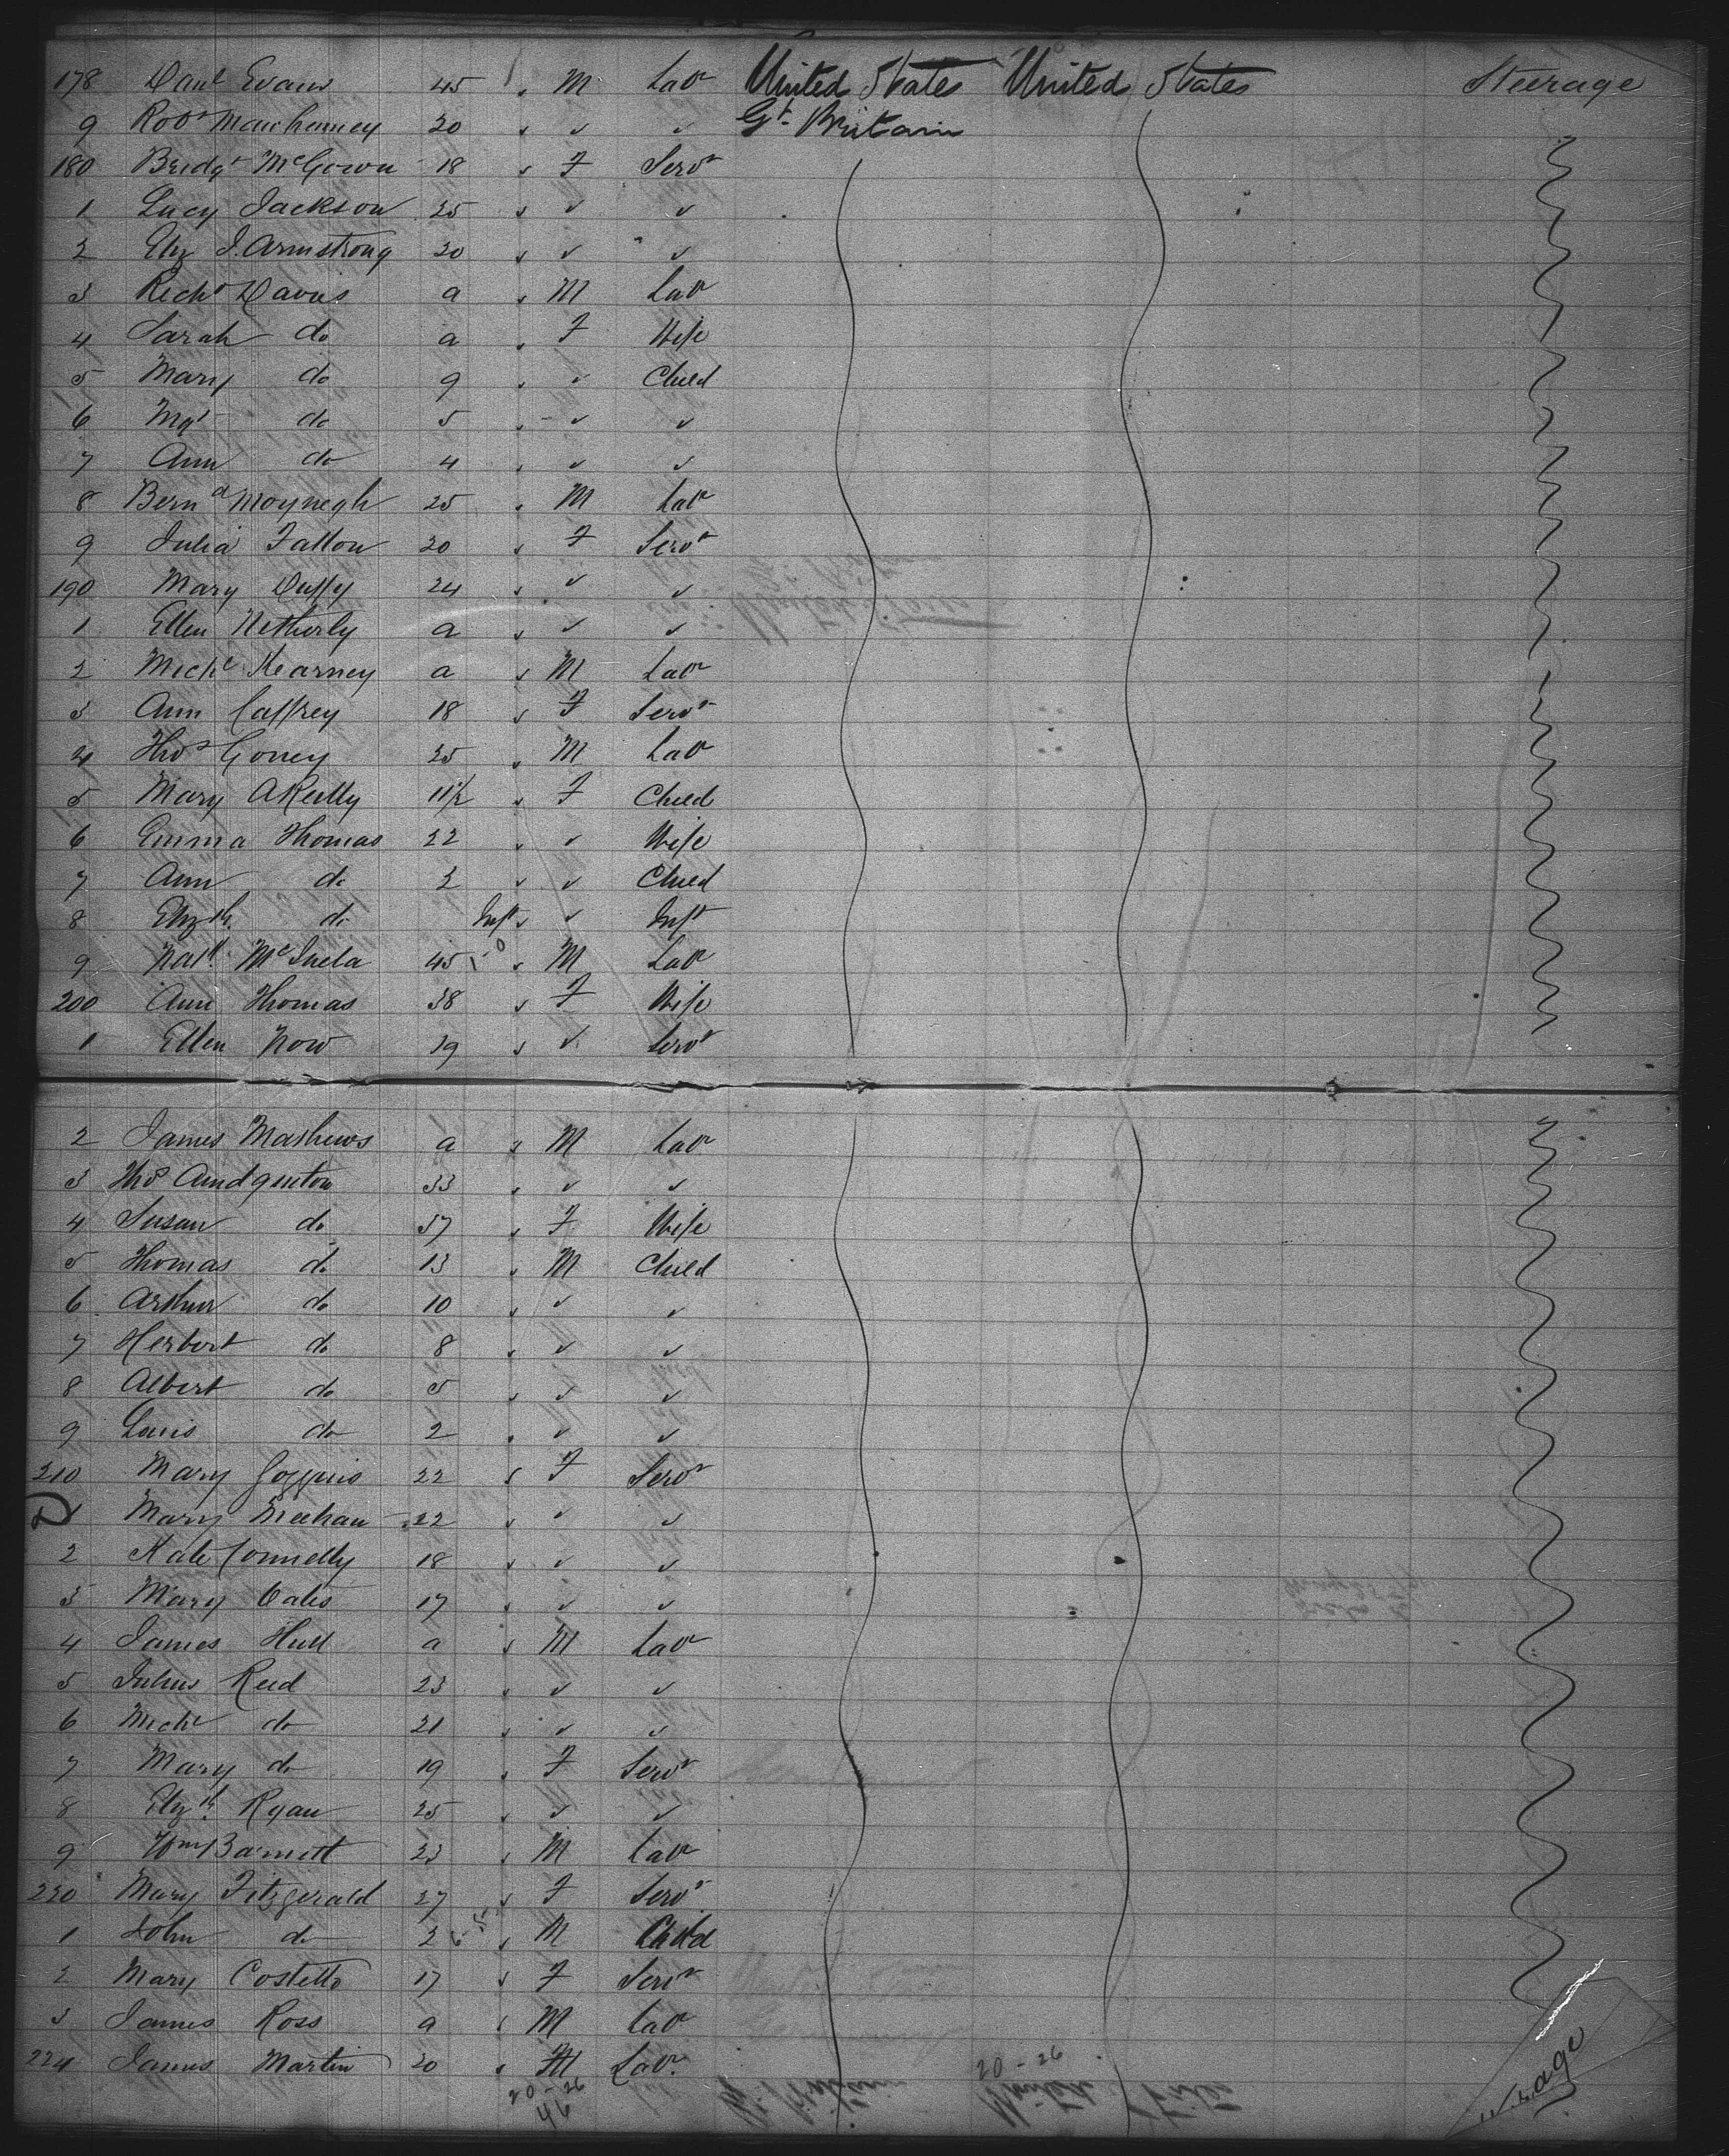 178 Danl Evans 45 M Labr United States United States Steerage
9 Robt 20 ✓ ✓ Gt Britain
180 Bridgt McGowan 18 F Servt
1 Lucy Jackson 25 ✓ ✓
2 Eliz J. Armstrong 20 ✓ ✓
3 Richd Davis a M Labr
4 Sarah do a F Wife
5 Mary do 9 ✓ Child
6 Mgt do 5 ✓ ✓
7 Ann do 4 ✓ ✓
8 Bernd Moynegh 25 M Labr
9 Julia Fallon 20 F Servt
190 Mary Duffy 24 ✓ ✓
1 Ellen Netherly a ✓ ✓
2 Michl Kearney a M Labr
3 Ann Caffrey 18 F Servt
4 Thos Goney 25 M Labr
5 Mary AReilly 11½ F Child
6 Emma Thomas 22 ✓ Wife
7 Ann do 3 ✓ Child
8 Elizth do Inft ✓ Inft
9 Natl. 45 M Labr
200 Ann Thomas 38 F Wife
1 Ellen Now 19 ✓ Servt
2 James Mathews a M Labr
3 Thos 33 ✓ ✓
4 Susan do 37 F Wife
5 Thomas do 13 M Child
6 Arthur do 10 ✓ ✓
7 Herbert do 8 ✓ ✓
8 Albert do 5 ✓ ✓
9 Louis do 2 ✓ ✓
210 Mary Goggins 22 F Servt
1 Mary Meehan 22 ✓ ✓
2 Kate Connelly 18 ✓ ✓
3 Mary Oates 17 ✓ ✓
4 James Hull a M Labr
5 Julius Reid 23 ✓ ✓
6 Michl do 21 ✓ ✓
7 Mary do 19 F Servt
8 Elizth Ryan 25 ✓ ✓
9 Wm Barnett 23 M Labr
220 Mary Fitzgerald 27 F Servt
1 John do 3 M Child
2 Mary Costello 17 F Servt
3 James Ross a M Labr
224 James Martin 20 M Labr.
20-26 20-26
46